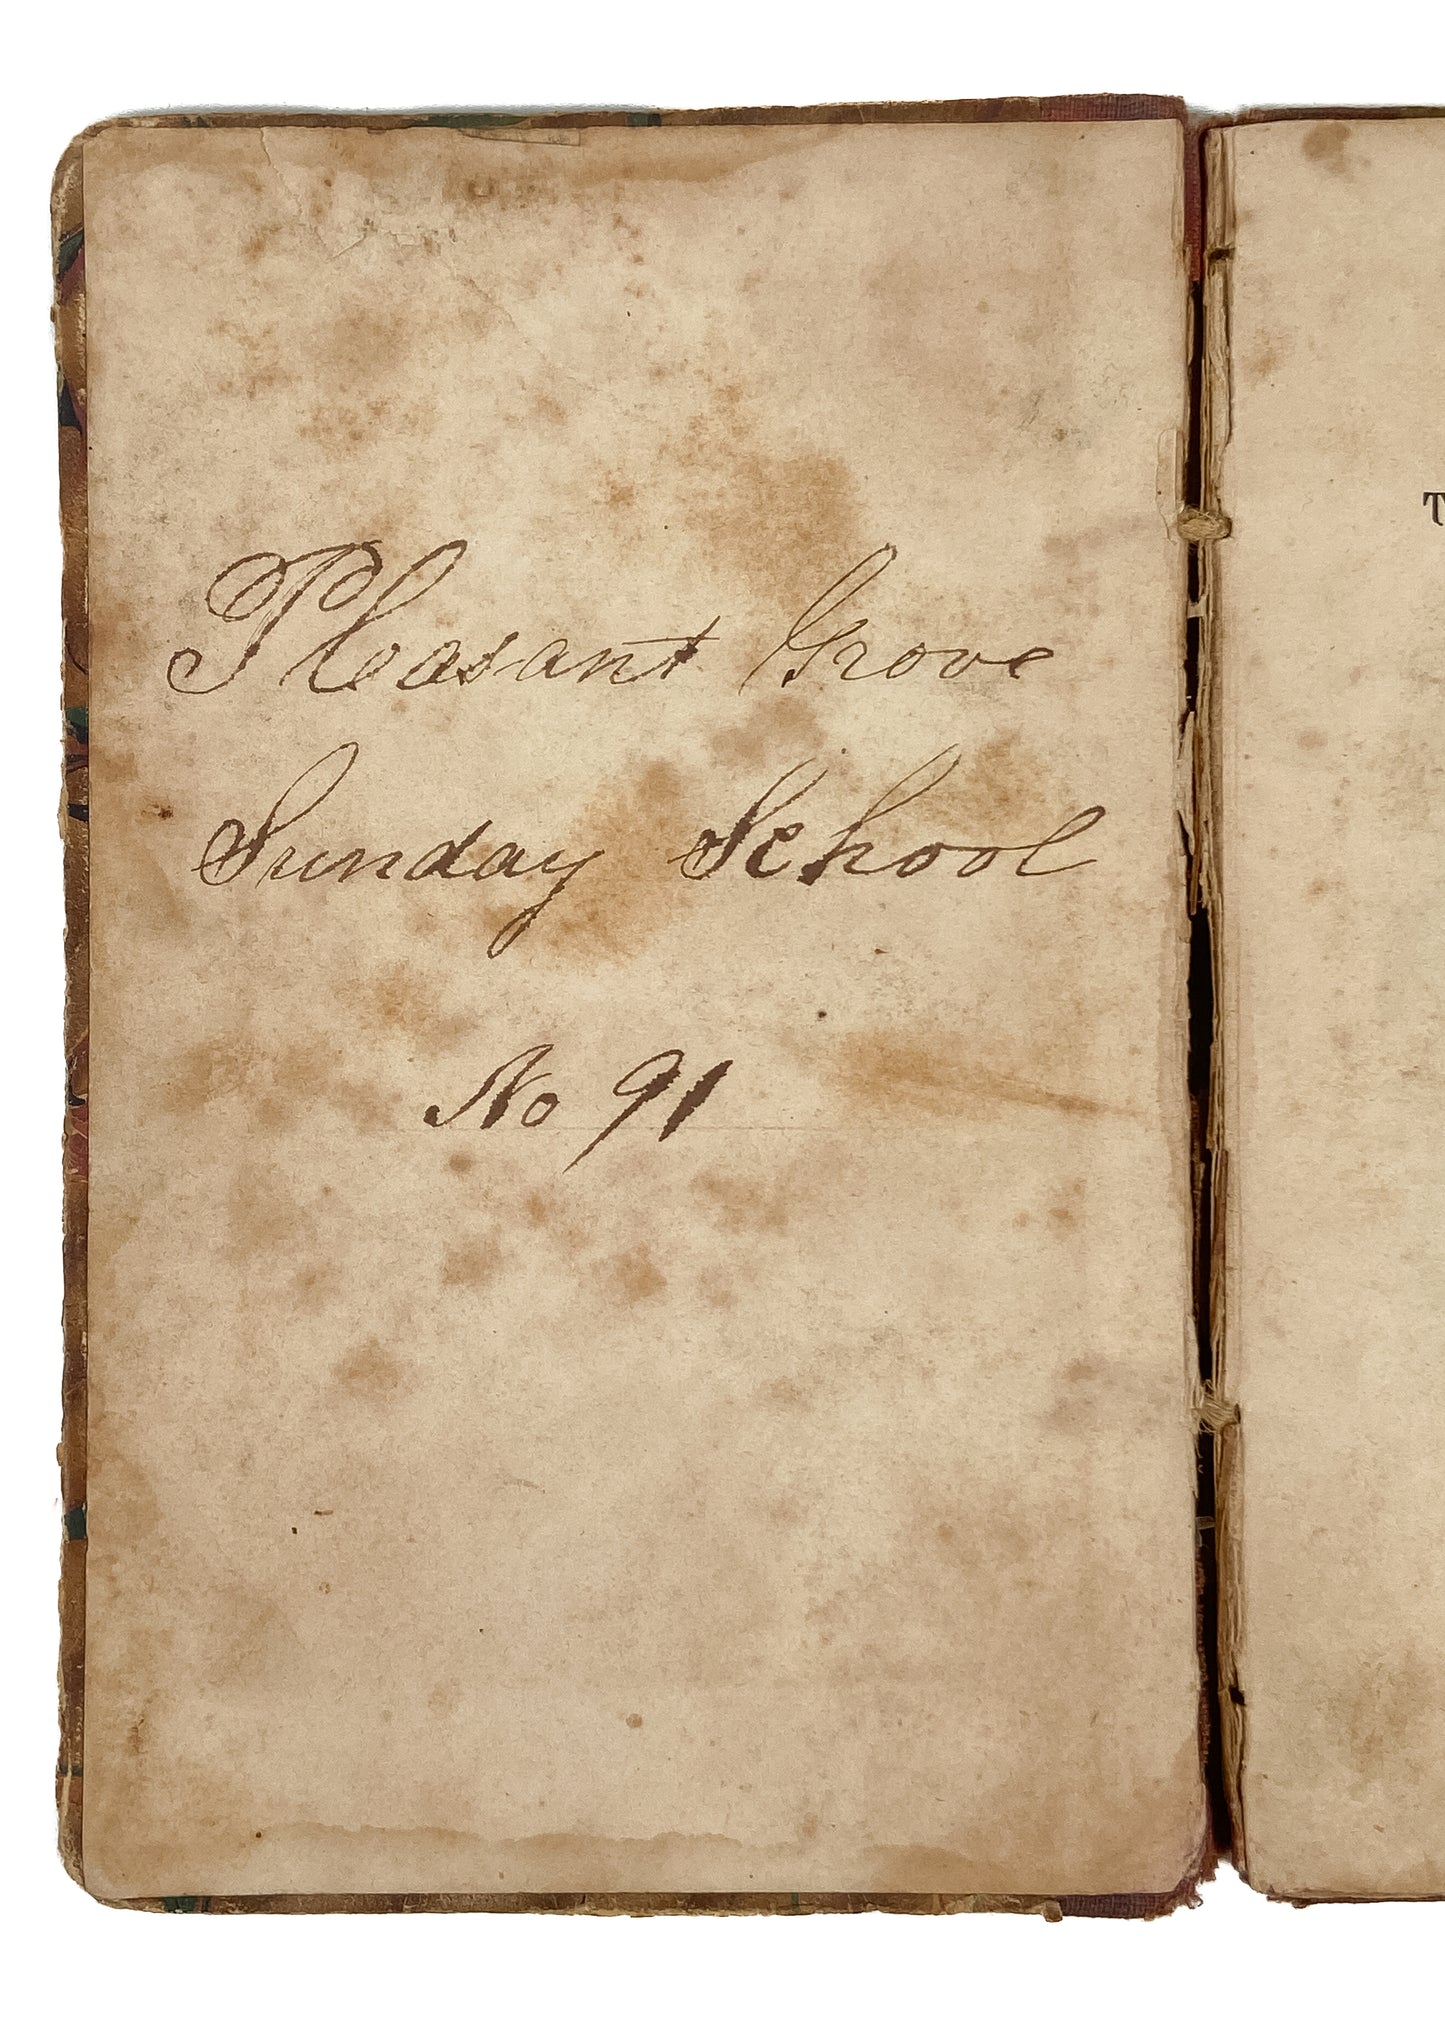 Pleasant Grove
Sunday School
No 91
T